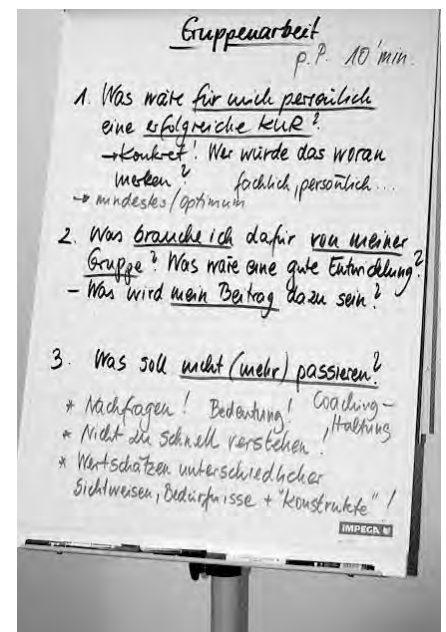 Gruppenarbeit
p.P. 10 min.
1. Was wäre für mich persönlich
eine erfolgreiche KUR?
→ Konkret! Wer würde das woran
merken? fachlich, persönlich...
→ mindestes/optimum
2. Was brauche ich dafür von meiner
Gruppe? Was wäre eine gute Entwicklung?
- Was wird mein Beitrag dazu sein?
3. Was soll nicht (mehr) passieren?
* Nachfragen! Bedeutung! Coaching-
Haltung
* Nicht zu schnell verstehen!
* Wertschätzen unterschiedlicher
Sichtweisen, Bedürfnisse + "Konstrukte"!
IMPEGA